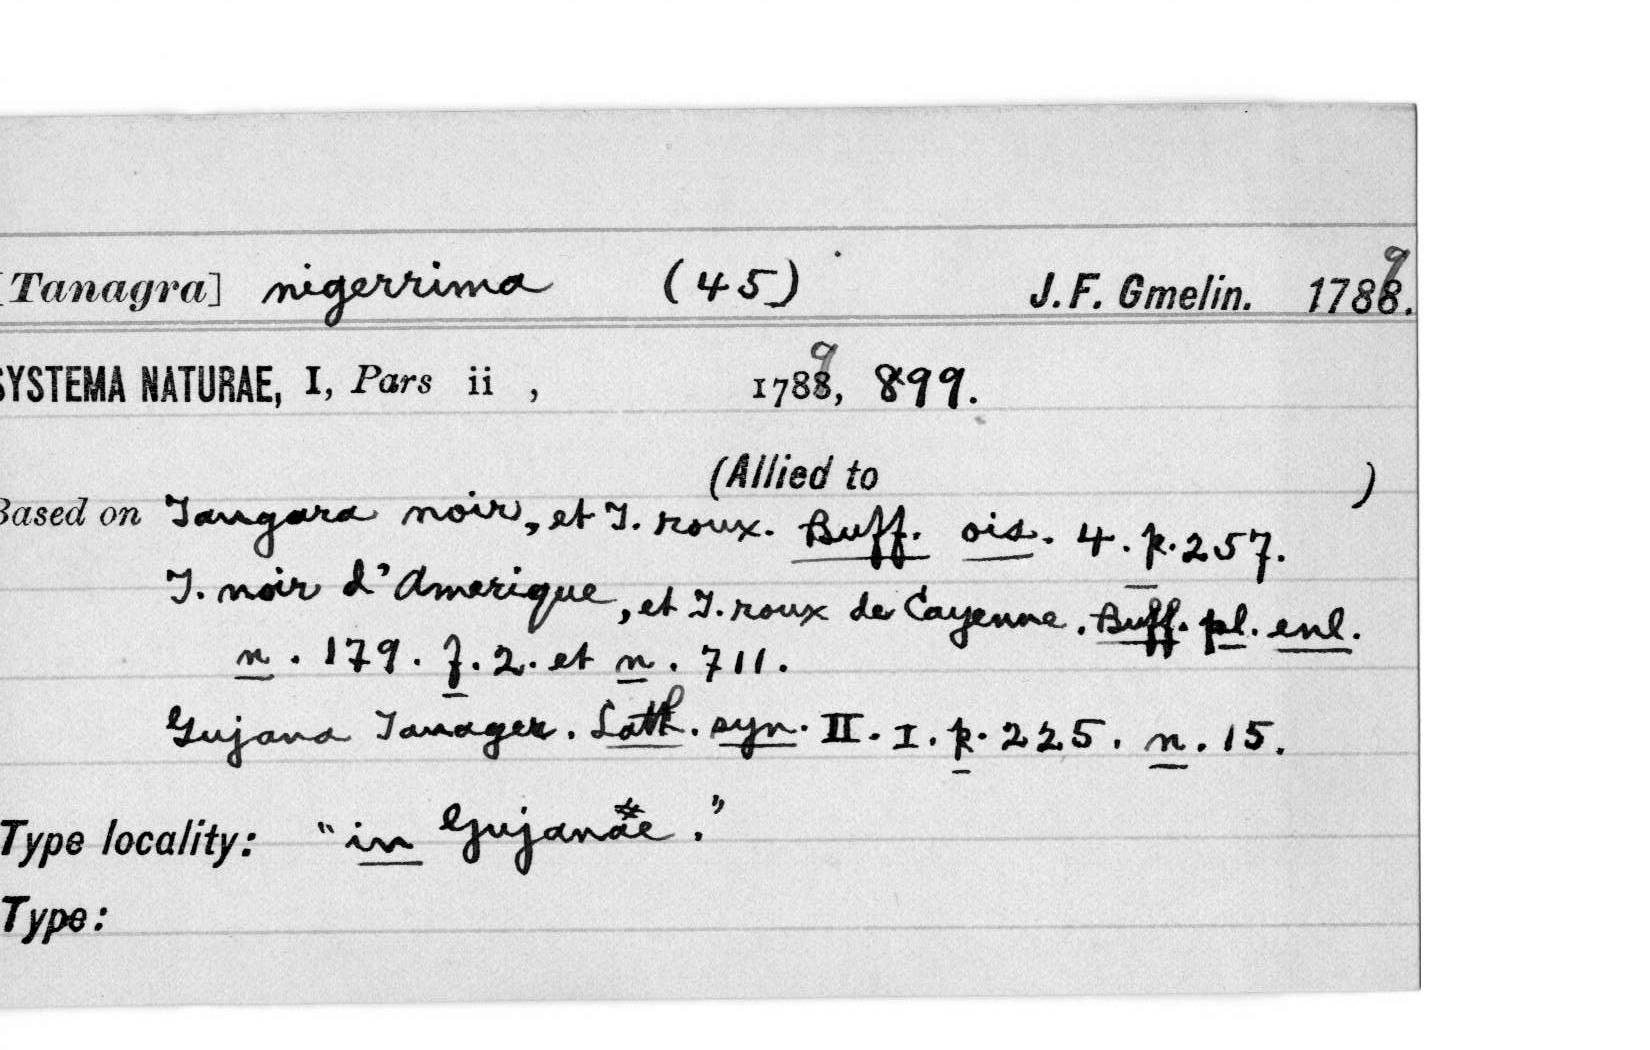 [Tanagra] nigerrima (45) J. F. Gmelin. 1789.
SYSTEMA NATURAE, I, Pars ii , 1789, 899.
(Allied to )
Based on Tangara noir, et T. roux. Buff. ois. 4. p. 257.
T. noir d'Amerique, et T. roux de Cayenne. Buff. pl. enl.
n. 179. f. 2. et n. 711.
Gujana Tanager. Lath. syn. II. I. p. 225. n. 15.
Type locality: "in Gujanae."
Type: